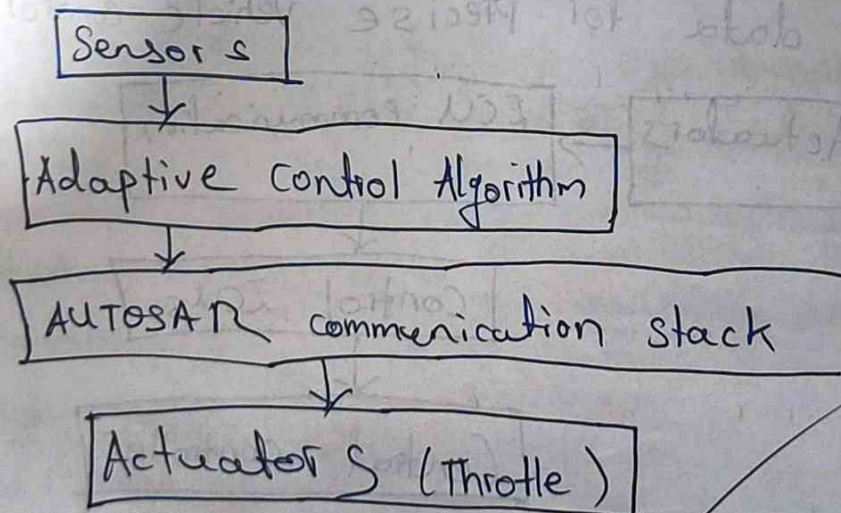 Sensors
Adaptive control Algorithm
AUTOSAR communication stack
Actuators (Throtle)